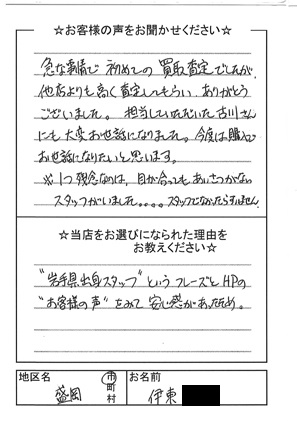 ☆お客様の声をお聞かせください☆
急な事情で初めての買取査定でしたが、
他店よりも高く査定してもらい、ありがとう
ございました。担当していただいた古川さん
にも大変お世話になりました。今度は購入で
お世話になりたいと思います。
※1つ残念なのは、目が合ってもあいさつがない
スタッフがいました。。。。スタッフでなかったらすいません
☆当店をお選びになられた理由を
お教えください☆
"岩手県出身スタッフ"というフレーズとHPの
"お客様の声"をみて安心感があったため。
地区名 盛岡 市町村 お名前 伊東